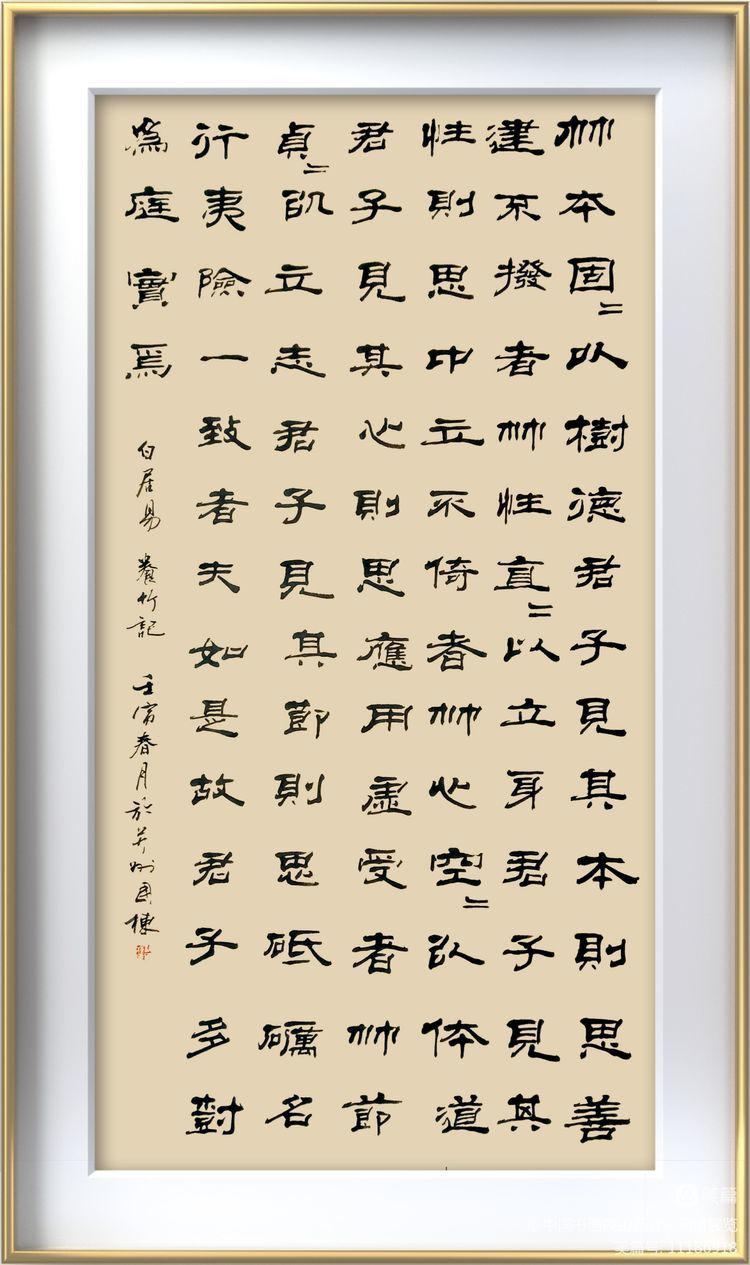 竹本固〻以樹德君子見其本則思善
建不撥者竹性直〻以立身君子見其
性則思中立不倚者竹心空〻以体道
君子見其心則思應用虛受者竹節
貞〻以立志君子見其節則思砥礪名
行夷險一致者夫如是故君子多尌
為庭實焉
白居易 養竹記 壬寅春月於并州國棟
美篇
美篇号: 11180918